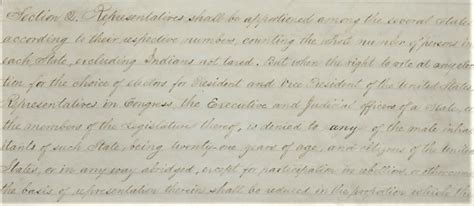 Section 2. Representatives shall be apportioned among the several States
according to their respective numbers, counting the whole number of persons in
each State, excluding Indians not taxed. But when the right to vote at any elec-
tion for the choice of electors for President and Vice President of the United States
Representatives in Congress, the Executive and Judicial officers of a State, or
the members of the Legislature thereof, is denied to any of the male inhabi-
tants of such State, being twenty-one years of age, and citizens of the United
States, or in any way abridged, except for participation in rebellion, or other crime
the basis of representation therein shall be reduced in the proportion which the